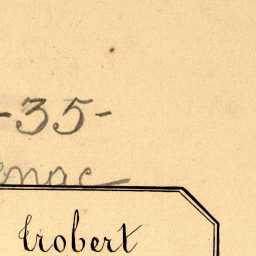 -35-
Trobert